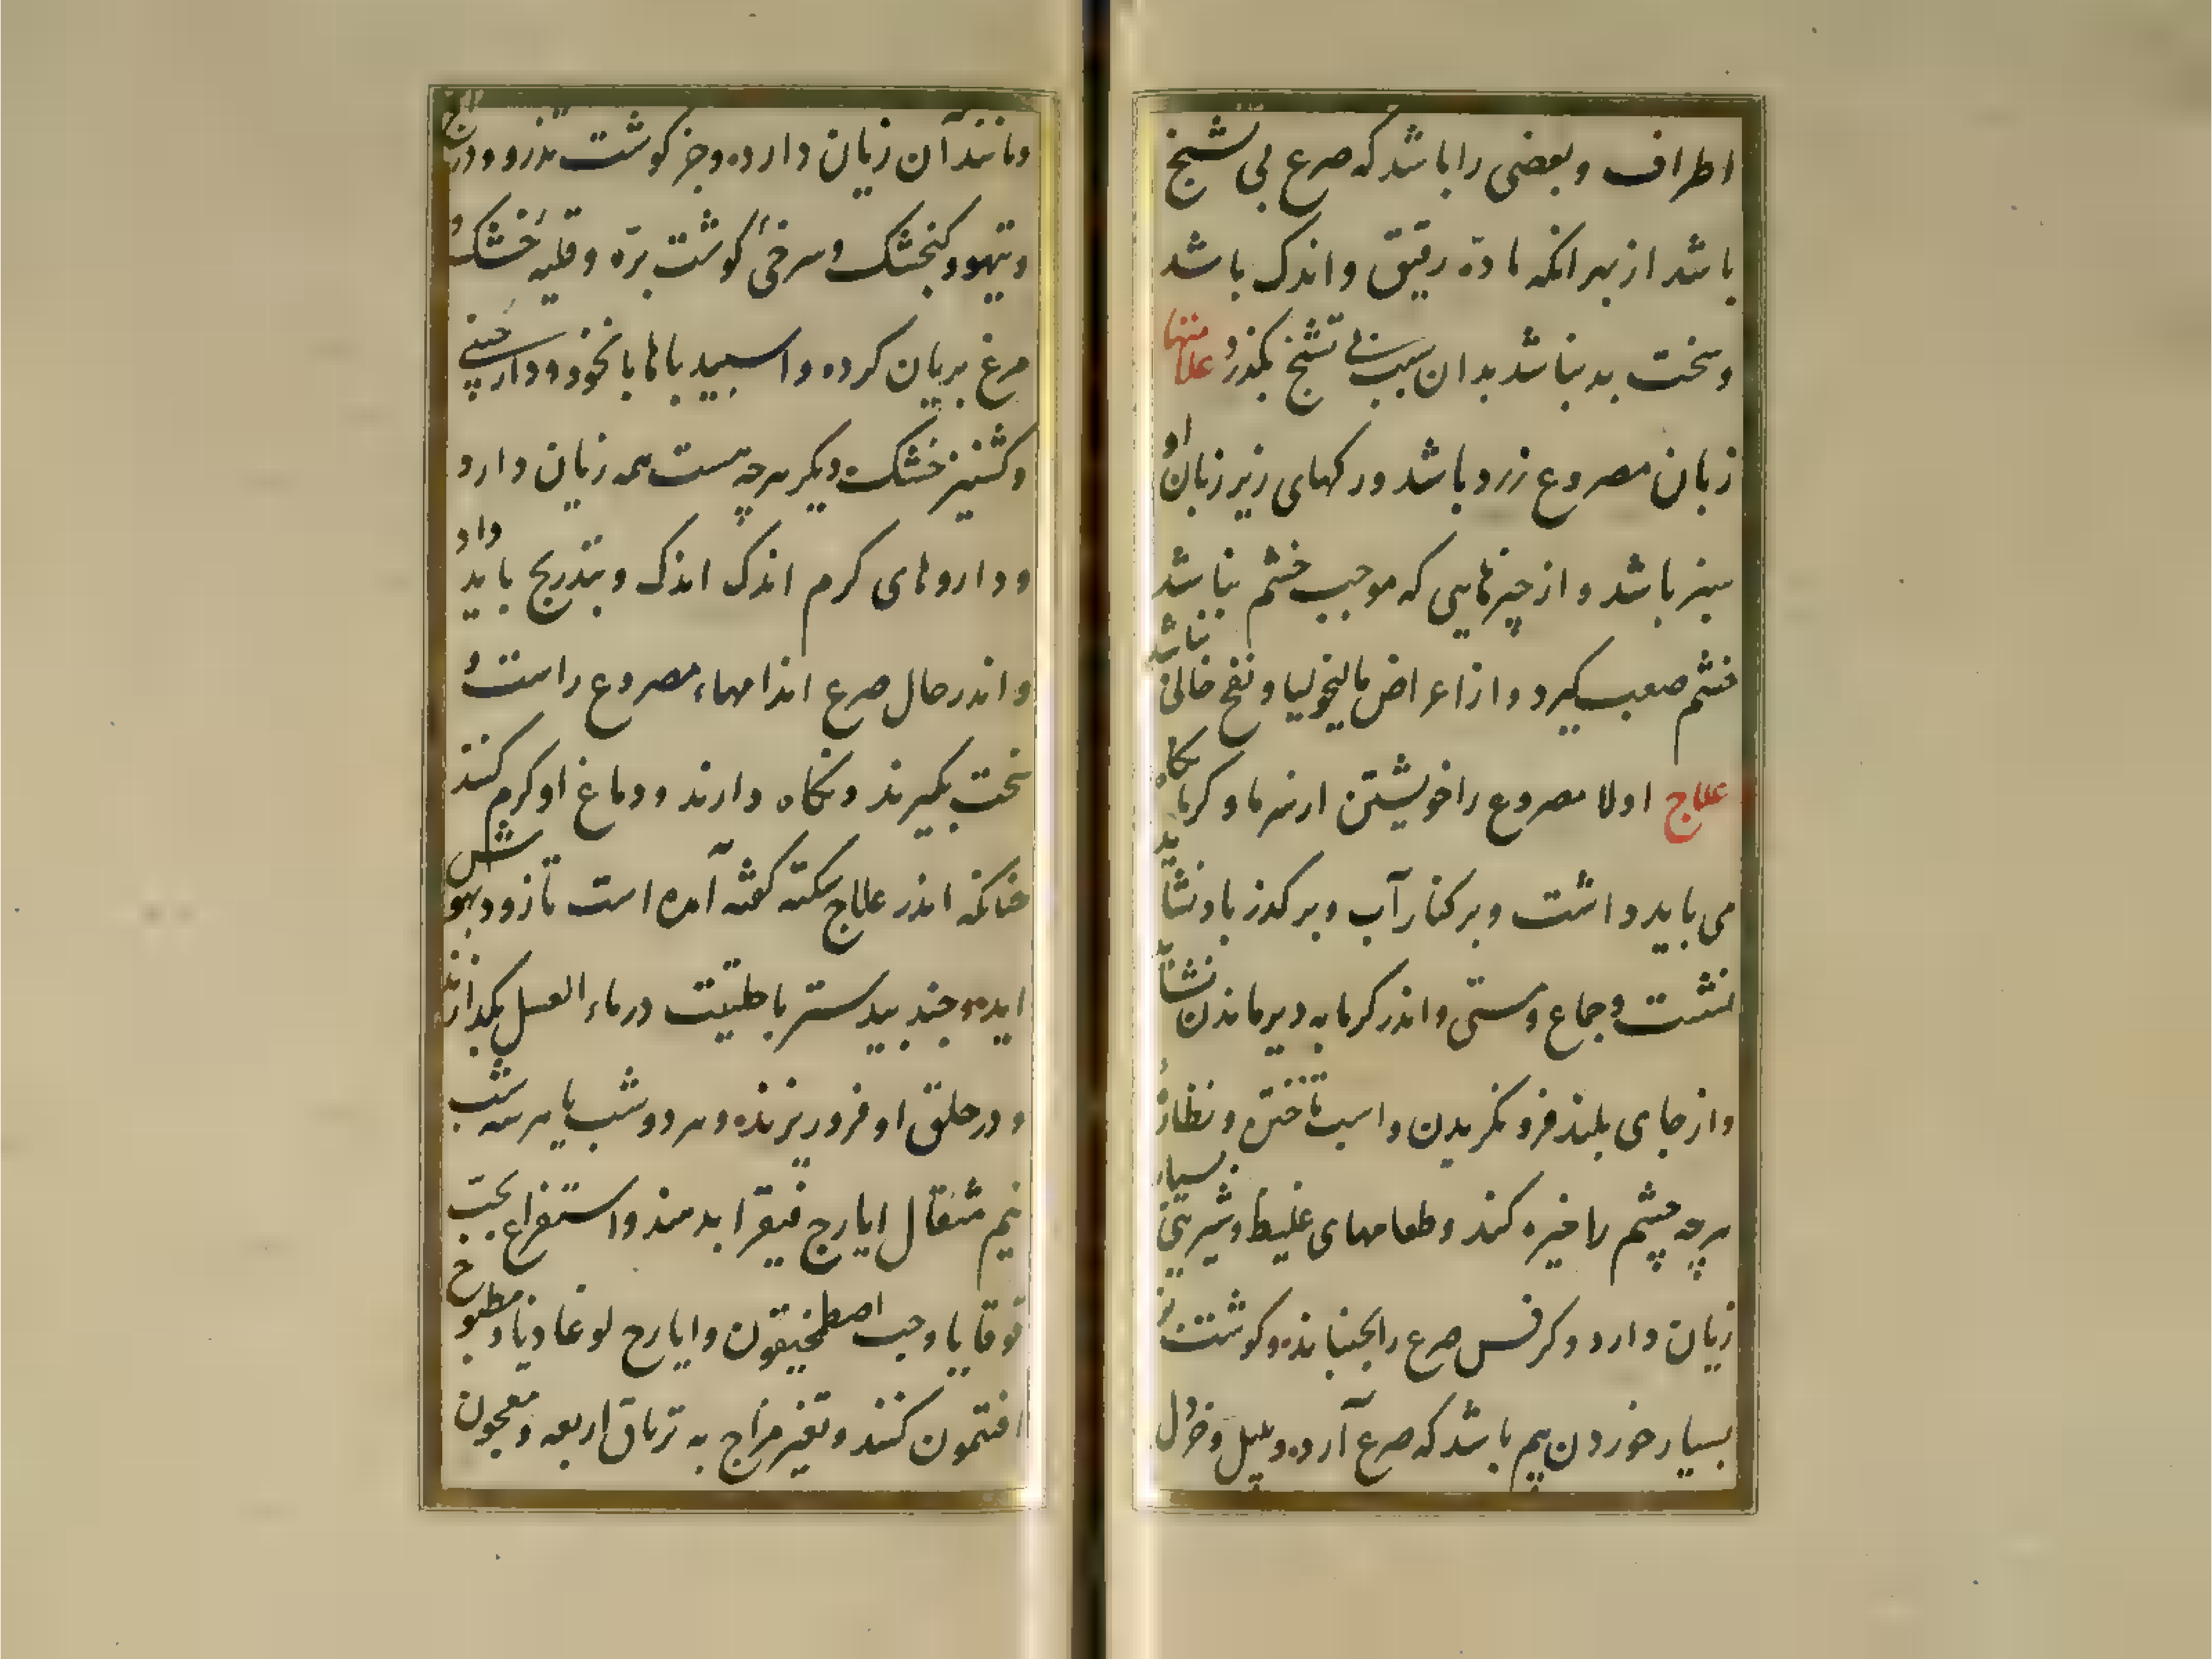 اطراف و بعضی را باشد که صرع بی تشنج
باشد از بهر انکه مادّه رقیق و اندک باشد
و سخت بد نباشد بدان سبب بی تشنج بکذرد و علامتها
زبان مصروع زرد باشد و رکهای زیر زبان او
سبز باشد و از چیزهایی که موجب خشم نباشد
خشم صعب کیرد و از اعراض مالیخولیا و نفخ خالی نباشد
علاج اولا مصروع را خویشتن از سرما و کرما نکاه
می باید داشت و بر کنار آب و بر کذر باد نشاید
نشست و جماع و مستی و اندر کرمابه دیر ماندن نشاید
و از جای بلند فرو نکریدن و اسب تاختن و نظاره
هرچه چشم را خیره کند و طعامهای غلیظ و شیرینی بسیار
زیان دارد و کرفس صرع را بجنباند و کوشت بز
بسیار خوردن بیم باشد که صرع آرد و پلپل و خردل
و مانند آن زیان دارد و جز کوشت تذرو و دراج
و تیهو و کنجشک و سرخی کوشت برّه و قلیهٔ خشک و
مرغ بریان کرده و اسپیدباها با نخود و دارچینی
و کشنیز خشک و دیکر هرچه هست همه زیان دارد
و داروهای کرم اندک اندک و بتدریج باید داد
و اندر حال صرع اندامهاء مصروع راست و
سخت بکیرند و نکاه دارند و دماغ او کرم کنند
چنانکه اندر علاج سکته کفته آمده است تا زود بهوش
اید و جند بیدستر با حلتیت در ماء العسل بکدازند
و در حلق او فرو ریزند و هر دو شب یا هر سه شب
نیم مثقال ایارج فیقرا بدهند و استفراغ بحبّ
قوقایا و حب اصطمخیقون و ایارج لوغادیا و مطبوخ
افتمون کنند و تغیر مزاج به تریاق اربعه و معجون